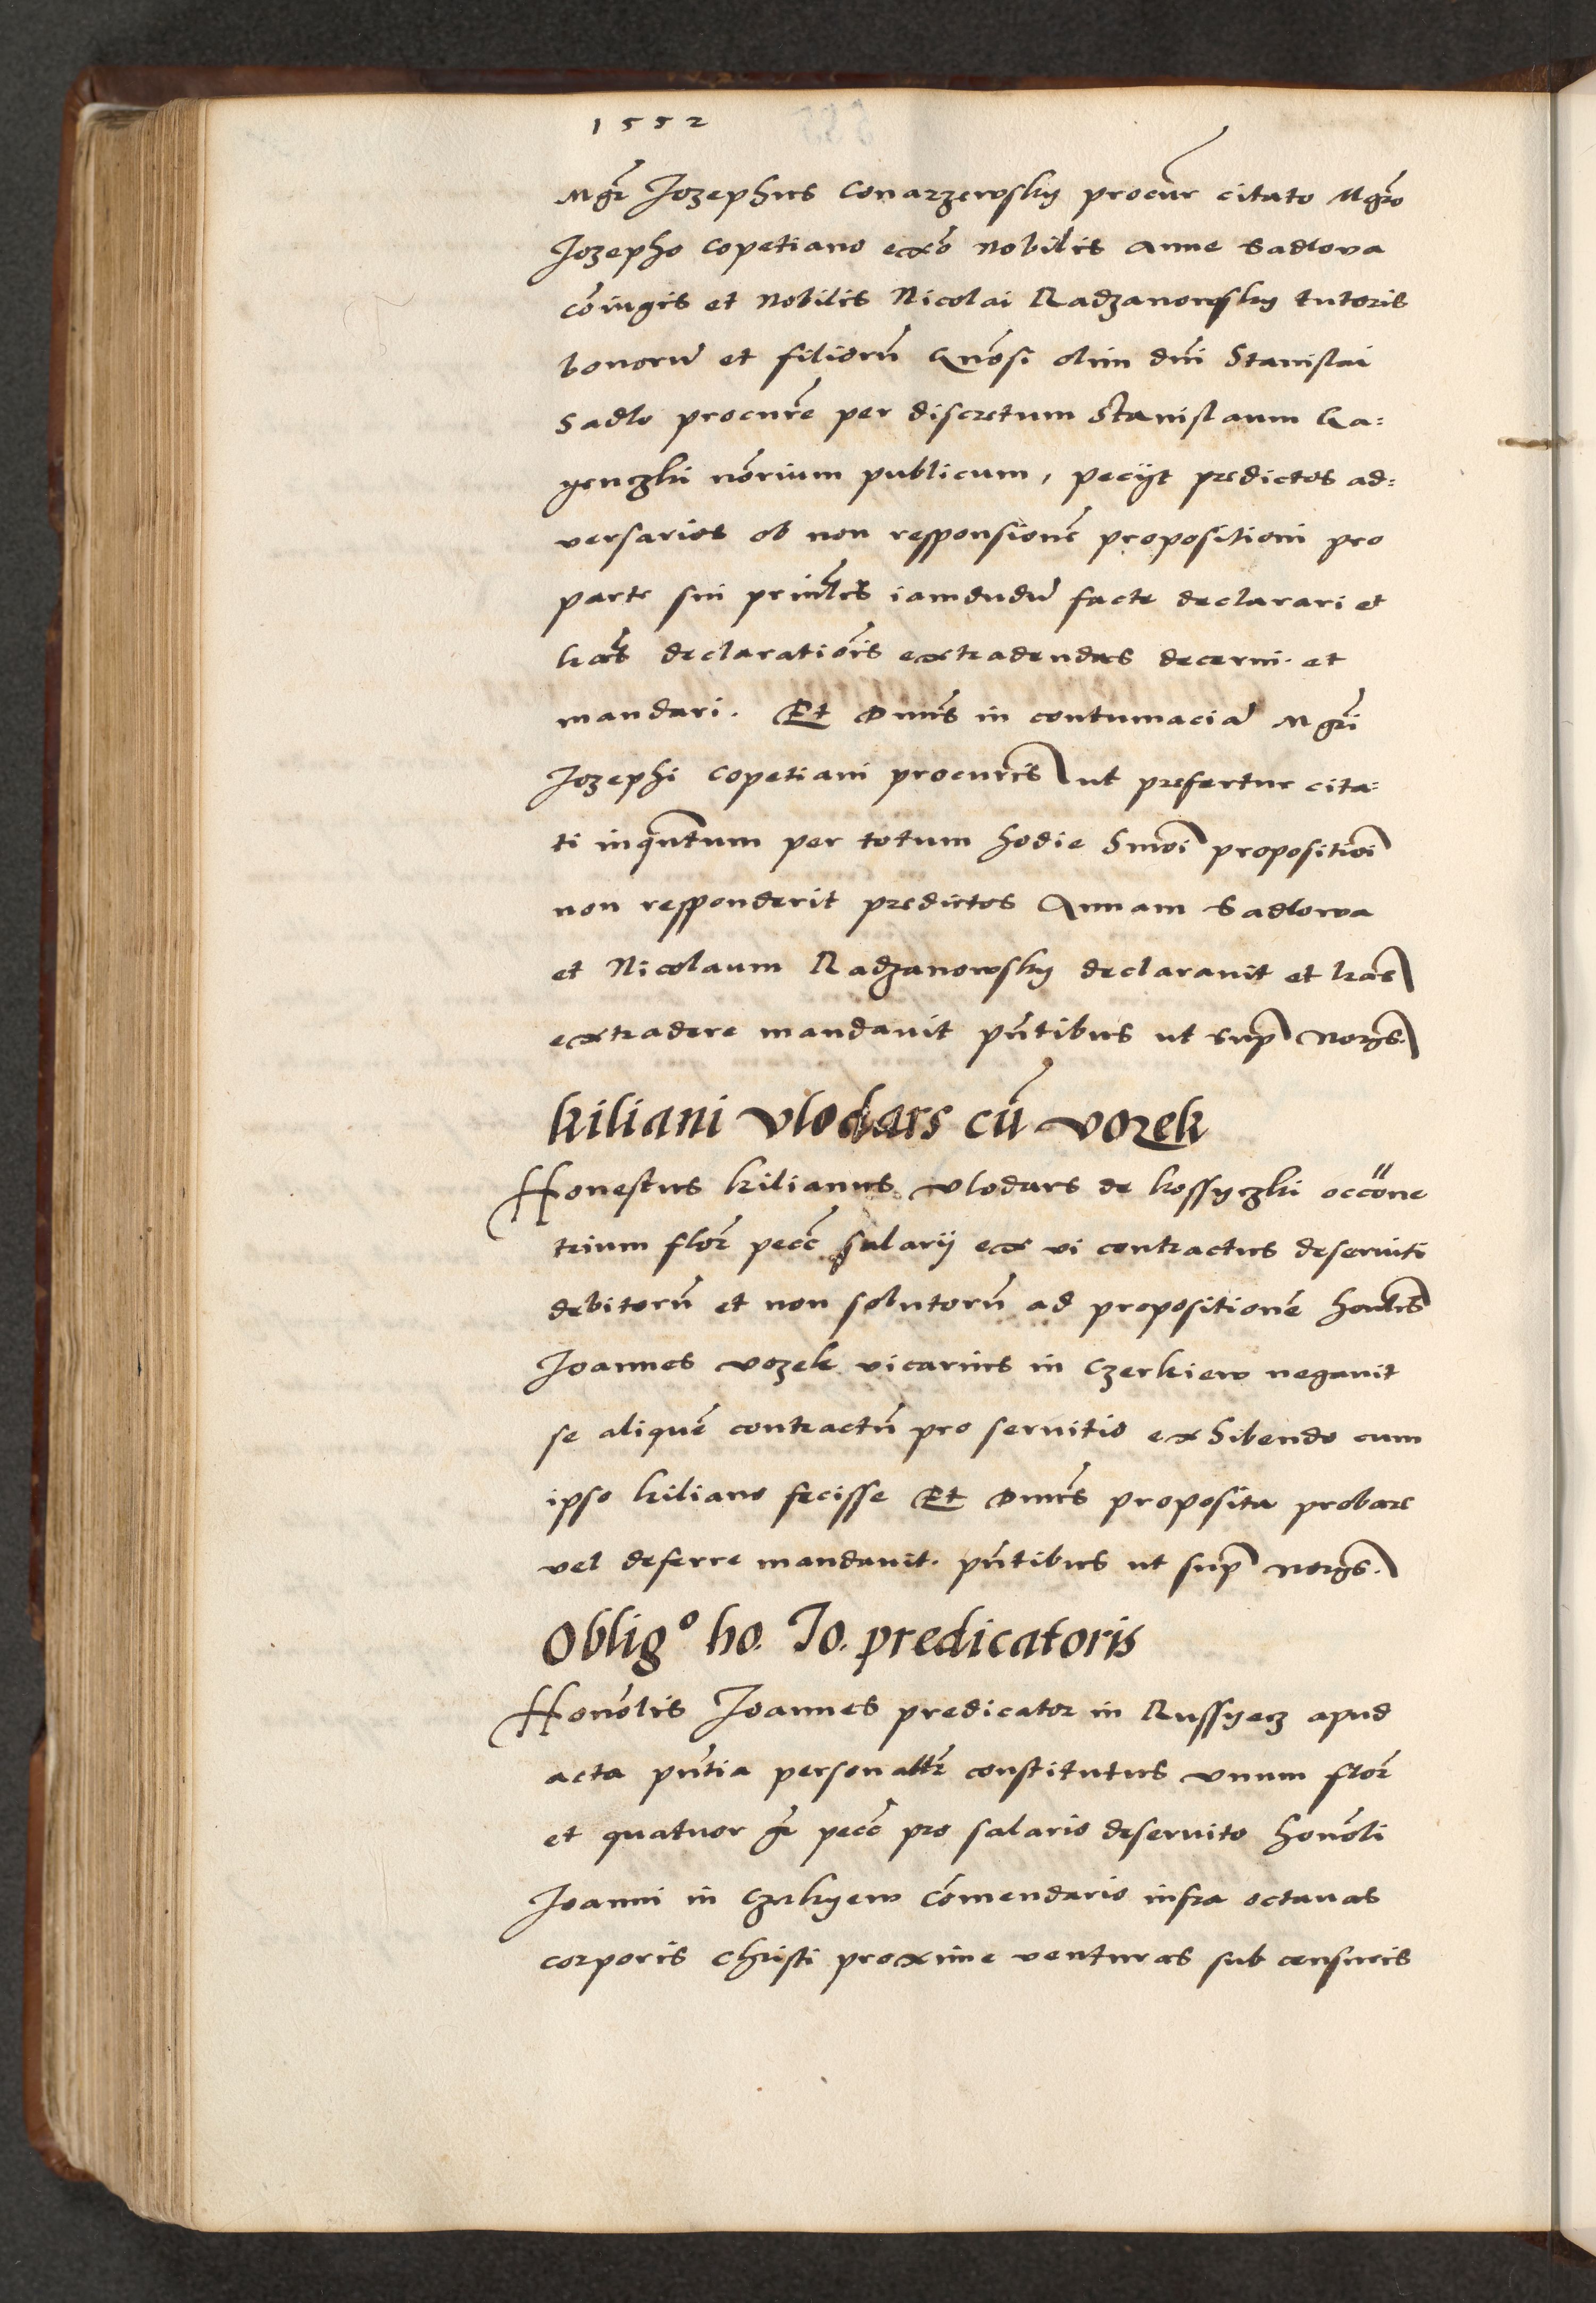 1552
Mgr Jozephus Conarzewsky procur citato Mgro
Jozepho Copetiano ex͠o Nobilis Anne Sadlova
co͠iugis et Nobilis Nicolai Radzanowsky tutoris
bonoru͠ et filioru͠ Gn͠osi olim dn͠i Stanislai
Sadlo procure͠ per discretum Stanislaum Ga=
genczki no͠rium publicum, peciit predictos ad=
versarios ob non responsione͠ propositioni pro
parte sui prin͠lis iamdudu͠ facte declarari et
l͠ras declaratio͠is extradendas decerni et
mandari. Et Dn͠us in contumacia͠ Mgri
Jozephi Copetiani procur͠is ut prefertur cita=
ti inq͠ntum per totum hodie hm͠oi propositio͠i
non responderit predictos Annam Sadlowa
et Nicolaum Radzanowsky declaravit et l͠ras
extradere mandavit pn͠tibus ut sup͠ Nor͠gs.
kiliani vlodars cu͠ vozek
Honestus kilianus vlodars de kossyczki occo͠ne
trium flor͠ pecc͠ salarii ex vi contractus deserviti
debitoru͠ et non solutoru͠ ad propositione͠ hon͠lis
Joannes vozek vicarius in Czerkiew negavit
se alique͠ contractu͠ pro servitio exhibendo cum
ipso kiliano fecisse Et Dn͠us proposita probare
vel deferre mandavit. pn͠tibus ut sup͠ Nor͠gs.
Oblig° ho. Jo. predicatoris
Honor͠lis Joannes predicator in Russyecz apud
acta pn͠tia personalr͠ constitutus unum flor͠
et quatuor gr͠ pecc͠ pro salario deservito honor͠li
Joanni in Czrkyew co͠mendario infra octavas
corporis Christi proxime venturas sub censuris